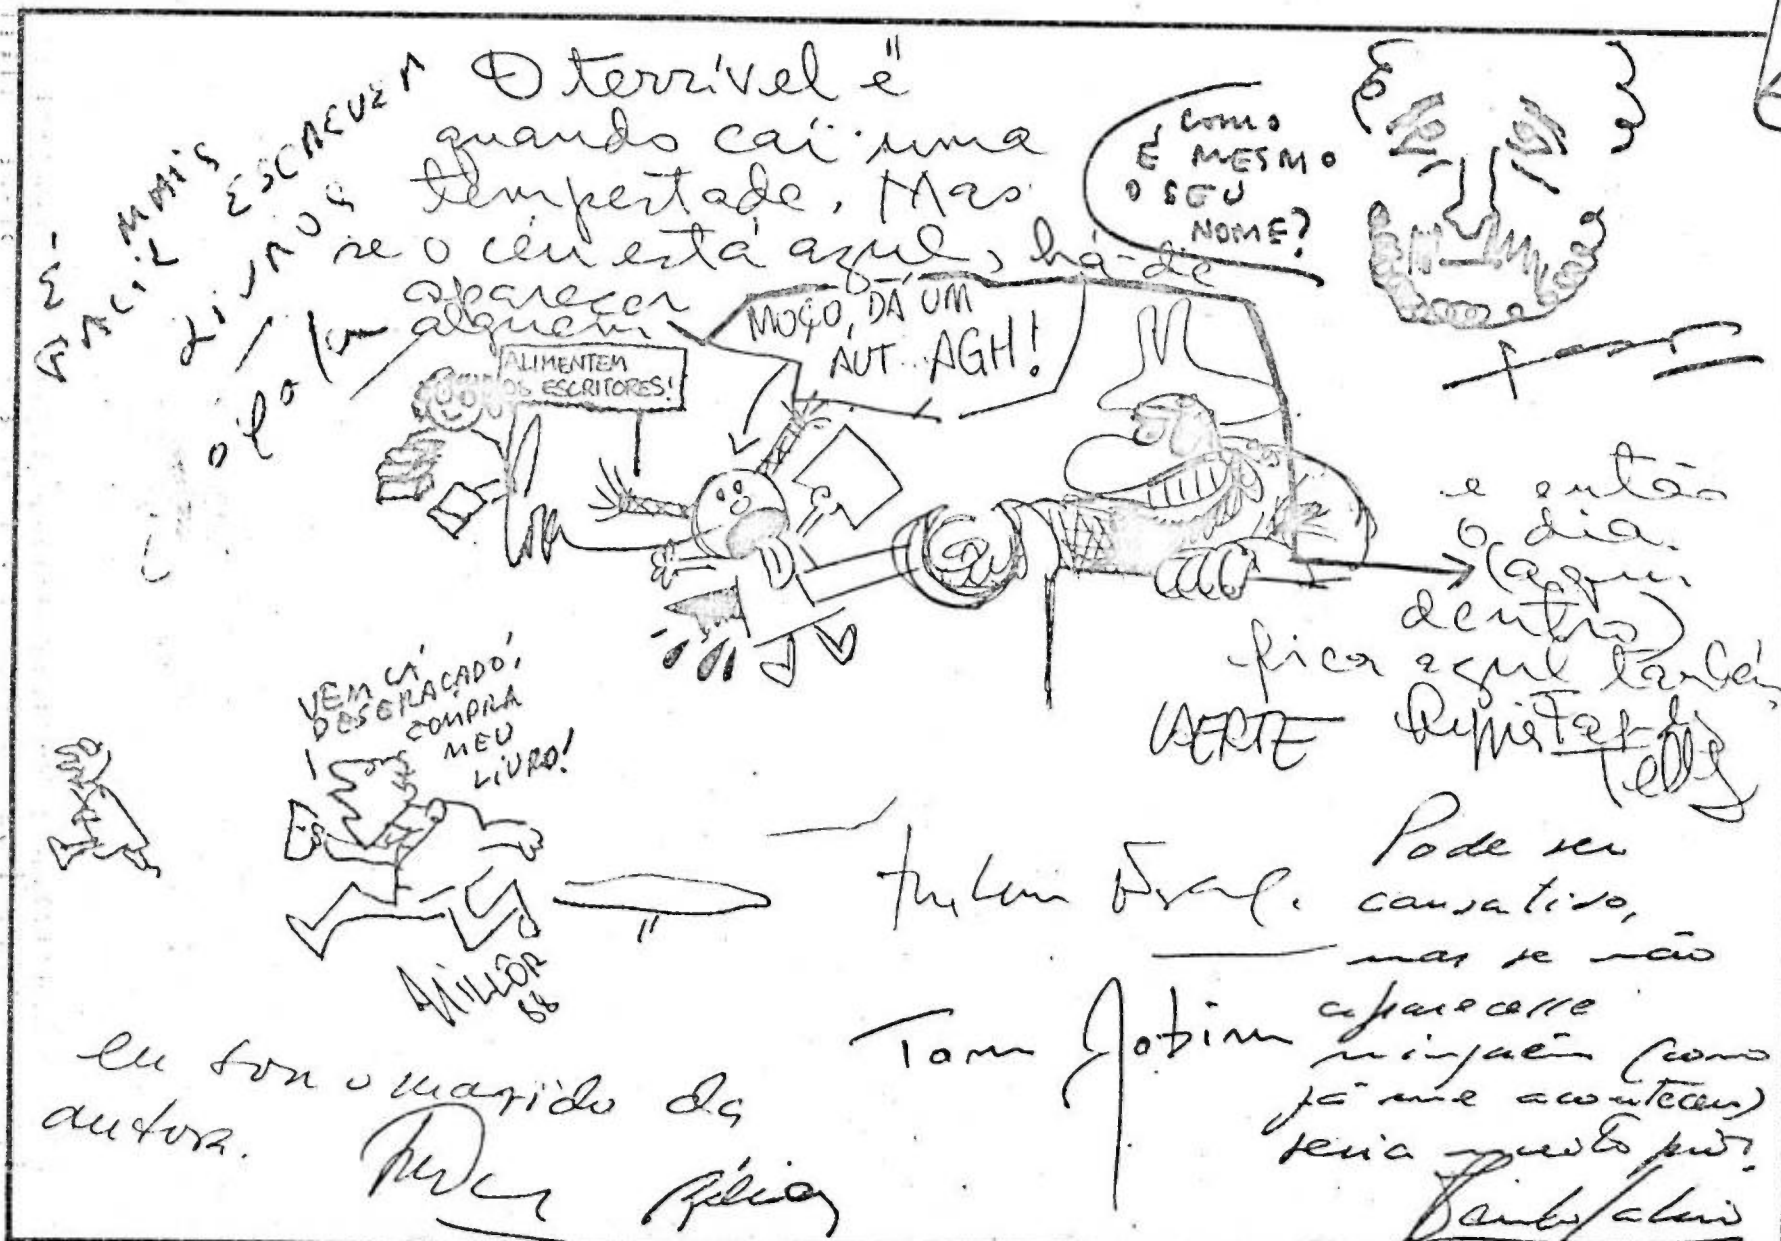 É
MAIS
FACIL ESCREVER
LIVROS
O terrível é
quando cai uma
tempestade. Mas
se o céu está azul, há-de
aparecer
alguém
COMO
É MESMO
O SEU
NOME?
ALIMENTEM
OS ESCRITORES!
MOÇO, DÁ UM
AUT.. AGH!
e então
o dia
(aqui
dentro)
fica azul também
LAERTE
Telles
VEM CÁ
DESGRAÇADO!
COMPRA
MEU
LIVRO!
MILLÔR
88
Tom Jobim
Pode ser
cansativo,
mas se não
aparecesse
ninguém (como
já me aconteceu)
seria muito pior.
eu sou o marido da
autora.
Zélia